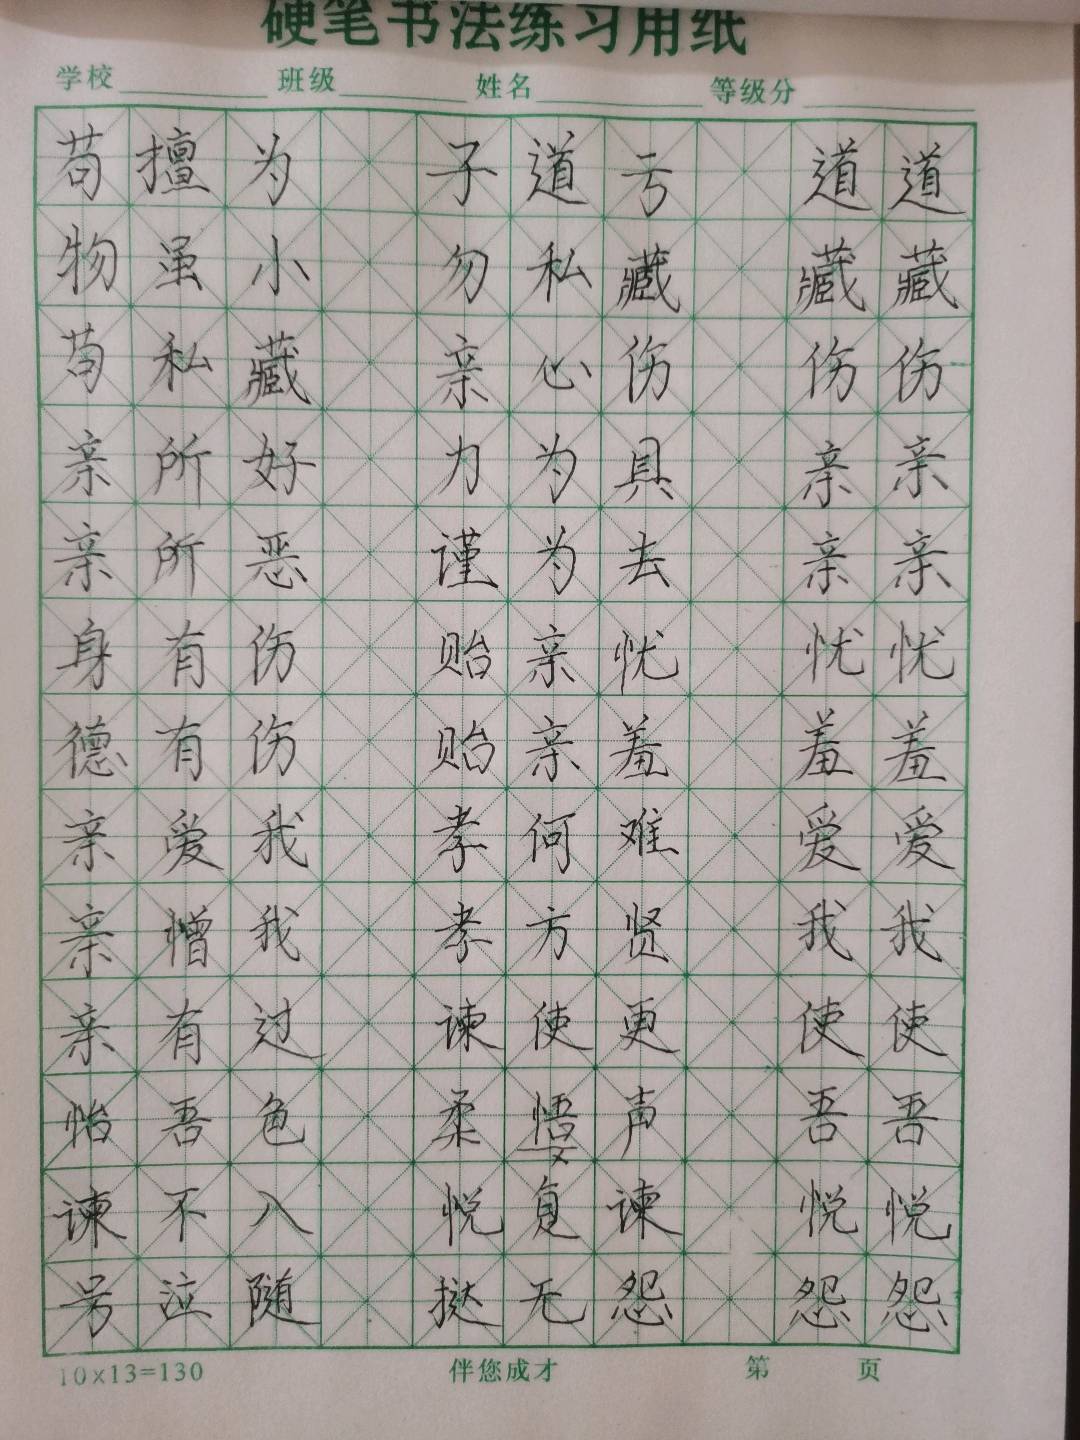 硬笔书法练习用纸
学校 班级 姓名 等级分
苟擅为 子道亏 道道
物虽小 勿私藏 藏藏
苟私藏 亲心伤 伤伤
亲所好 力为具 亲亲
亲所恶 谨为去 亲亲
身有伤 贻亲忧 忧忧
德有伤 贻亲羞 羞羞
亲爱我 孝何难 爱爱
亲憎我 孝方贤 我我
亲有过 谏使更 使使
怡吾色 柔悟声 吾吾
谏不入 悦复谏 悦悦
号泣随 挞无怨 怨怨
10×13=130 伴您成才 第 页